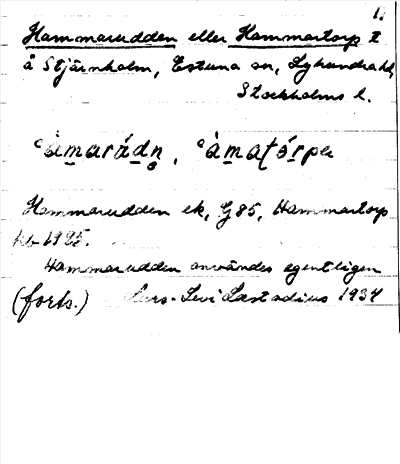 1.
Hammarudden eller Hammartorp t
å Stjärnholm, Estuna sn, Lyhundra hd,
Stockholms l.
`àmarádn̥, `àmatǫ́rpa
Hammarudden ek, G85, Hammartorp
kb 1925.
Hammarudden användes egentligen
(forts.) Lars-Levi Læstadius 1934